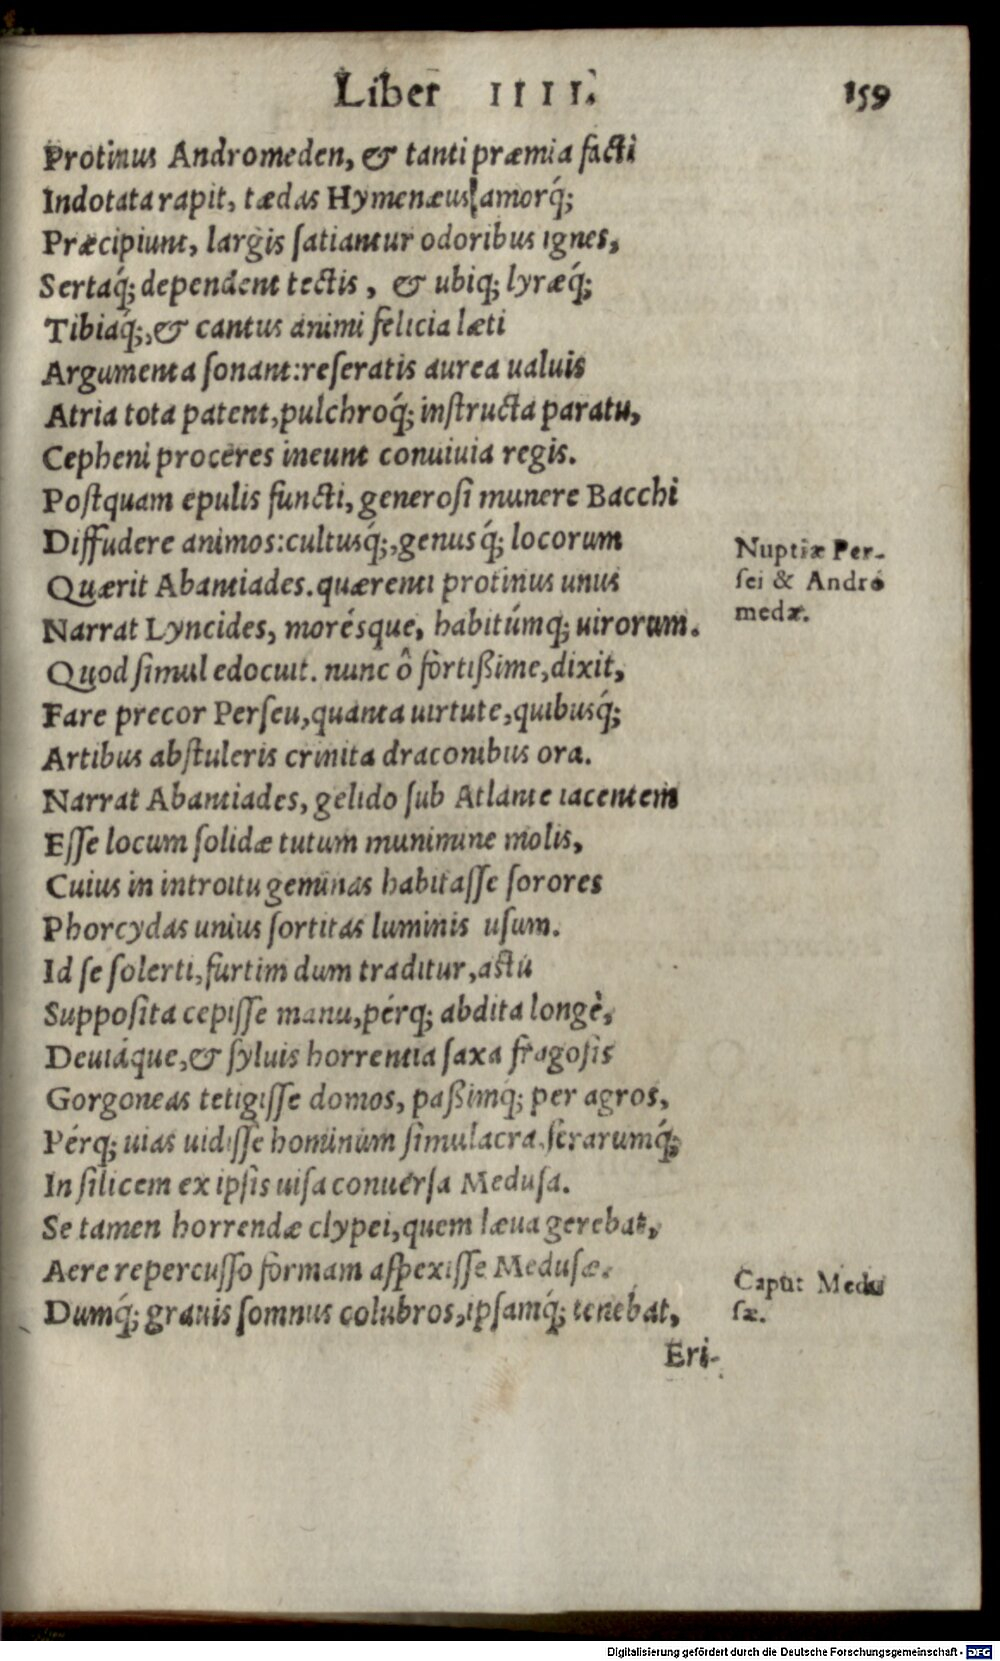 Liber IIII. 159
Protinus Andromeden, & tanti præmia facti
Indotata rapit, tædas Hymenæus amorq́;
Præcipiunt, largis ſatiantur odoribus ignes,
Sertaq́; dependent tectis, & ubiq; lyræq́;
Tibiaq́;, & cantus animi felicia læti
Argumenta ſonant: reſeratis aurea ualuis
Atria tota patent, pulchroq́; inſtructa paratu,
Cepheni proceres ineunt conuiuia regis.
Poſtquam epulis functi, generoſi munere Bacchi
Diffudere animos: cultusq́;, genusq́; locorum
Quærit Abantiades. quærenti protinus unus
Narrat Lyncides, morésque, habitúmq; uirorum.
Quod ſimul edocuit. nunc ô fortißime, dixit,
Fare precor Perſeu, quanta uirtute, quibusq́;
Artibus abſtuleris crinita draconibus ora.
Narrat Abantiades, gelido ſub Atlante iacentem
Eſſe locum ſolidæ tutum munimine molis,
Cuius in introitu geminas habitaſſe ſorores
Phorcydas unius ſortitas luminis uſum.
Id ſe ſolerti, furtim dum traditur, aſtu
Suppoſita cepiſſe manu, pérq; abdita longè,
Deuiáque, & ſyluis horrentia ſaxa fragoſis
Gorgoneas tetigiſſe domos, paßimq́; per agros,
Pérq; uias uidiſſe hominum ſimulacra, ferarumq́;
In ſilicem ex ipſis uiſa conuerſa Meduſa.
Se tamen horrendæ clypei, quem læua gerebat,
Aere repercuſſo formam aſpexiſſe Meduſæ.
Dumq́; grauis ſomnus colubros, ipſamq́; tenebat,
Eri-
Nuptiæ Per-
ſei & Andro
medæ.
Caput Medu
ſæ.
Digitalisierung gefördert durch die Deutsche Forschungsgemeinschaft - DFG